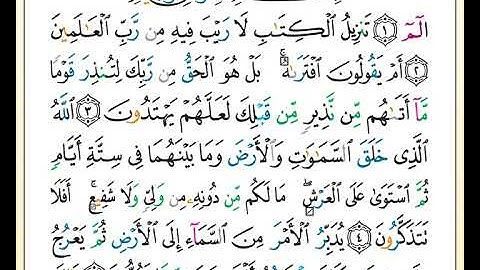 الٓمٓ ۝١ تَنزِيلُ ٱلْكِتَٰبِ لَا رَيْبَ فِيهِ مِن رَّبِّ ٱلْعَٰلَمِينَ
۝٢ أَمْ يَقُولُونَ ٱفْتَرَىٰهُ ۚ بَلْ هُوَ ٱلْحَقُّ مِن رَّبِّكَ لِتُنذِرَ قَوْمًا
مَّآ أَتَىٰهُم مِّن نَّذِيرٍ مِّن قَبْلِكَ لَعَلَّهُمْ يَهْتَدُونَ ۝٣ ٱللَّهُ
ٱلَّذِى خَلَقَ ٱلسَّمَٰوَٰتِ وَٱلْأَرْضَ وَمَا بَيْنَهُمَا فِى سِتَّةِ أَيَّامٍ
ثُمَّ ٱسْتَوَىٰ عَلَى ٱلْعَرْشِ ۖ مَا لَكُم مِّن دُونِهِۦ مِن وَلِىٍّ وَلَا شَفِيعٍ ۚ أَفَلَا
تَتَذَكَّرُونَ ۝٤ يُدَبِّرُ ٱلْأَمْرَ مِنَ ٱلسَّمَآءِ إِلَى ٱلْأَرْضِ ثُمَّ يَعْرُجُ